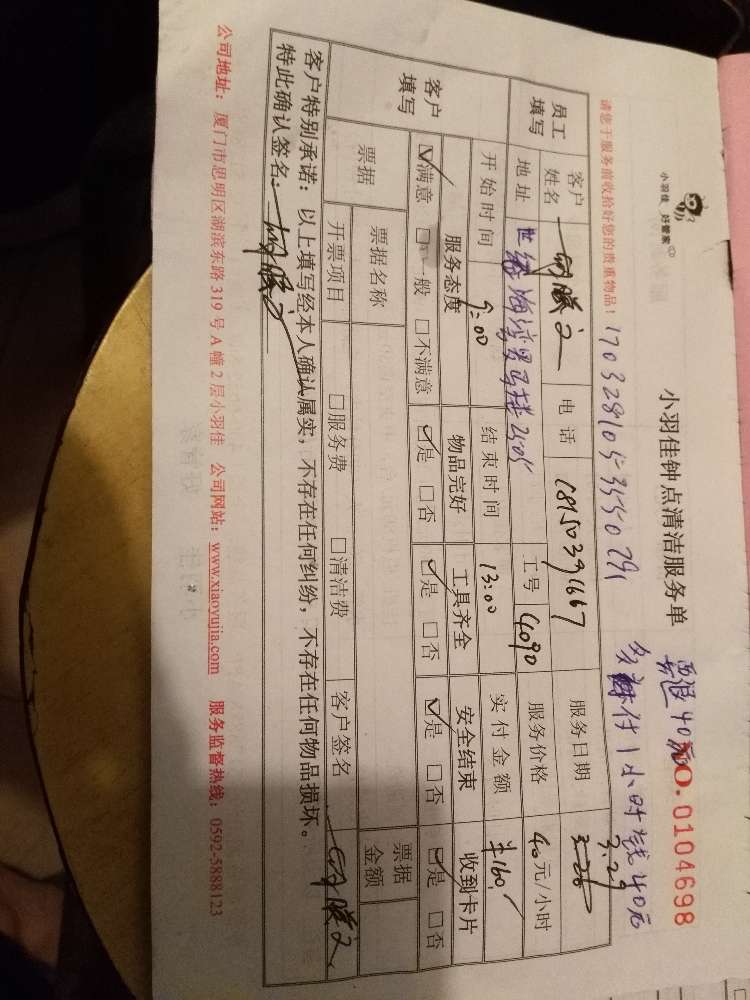 小羽佳 好管家
小羽佳钟点清洁服务单
NO.0104698
要退40元
多付1小时钱40元
请您于服务前收拾好您的贵重物品！
员工填写
客户姓名
电话 18150391667
服务日期 3-28 3.29
地址 世纪海湾 2505
工号 4090
服务价格 40元/小时
开始时间 9:00
结束时间 13:00
实付金额 ¥160
客户填写
服务态度 物品完好 工具齐全 安全结束 收到卡片
☑满意 □一般 □不满意 ☑是 □否 ☑是 □否 ☑是 □否 ☑是 □否
票据
票据名称
票据金额
开票项目 □服务费 □清洁费 客户签名
客户特别承诺：以上填写经本人确认属实，不存在任何纠纷，不存在任何物品损坏。
特此确认签名：
公司地址：厦门市思明区湖滨东路319号A幢2层小羽佳 公司网站：www.xiaoyujia.com 服务监督热线：0592-5888123